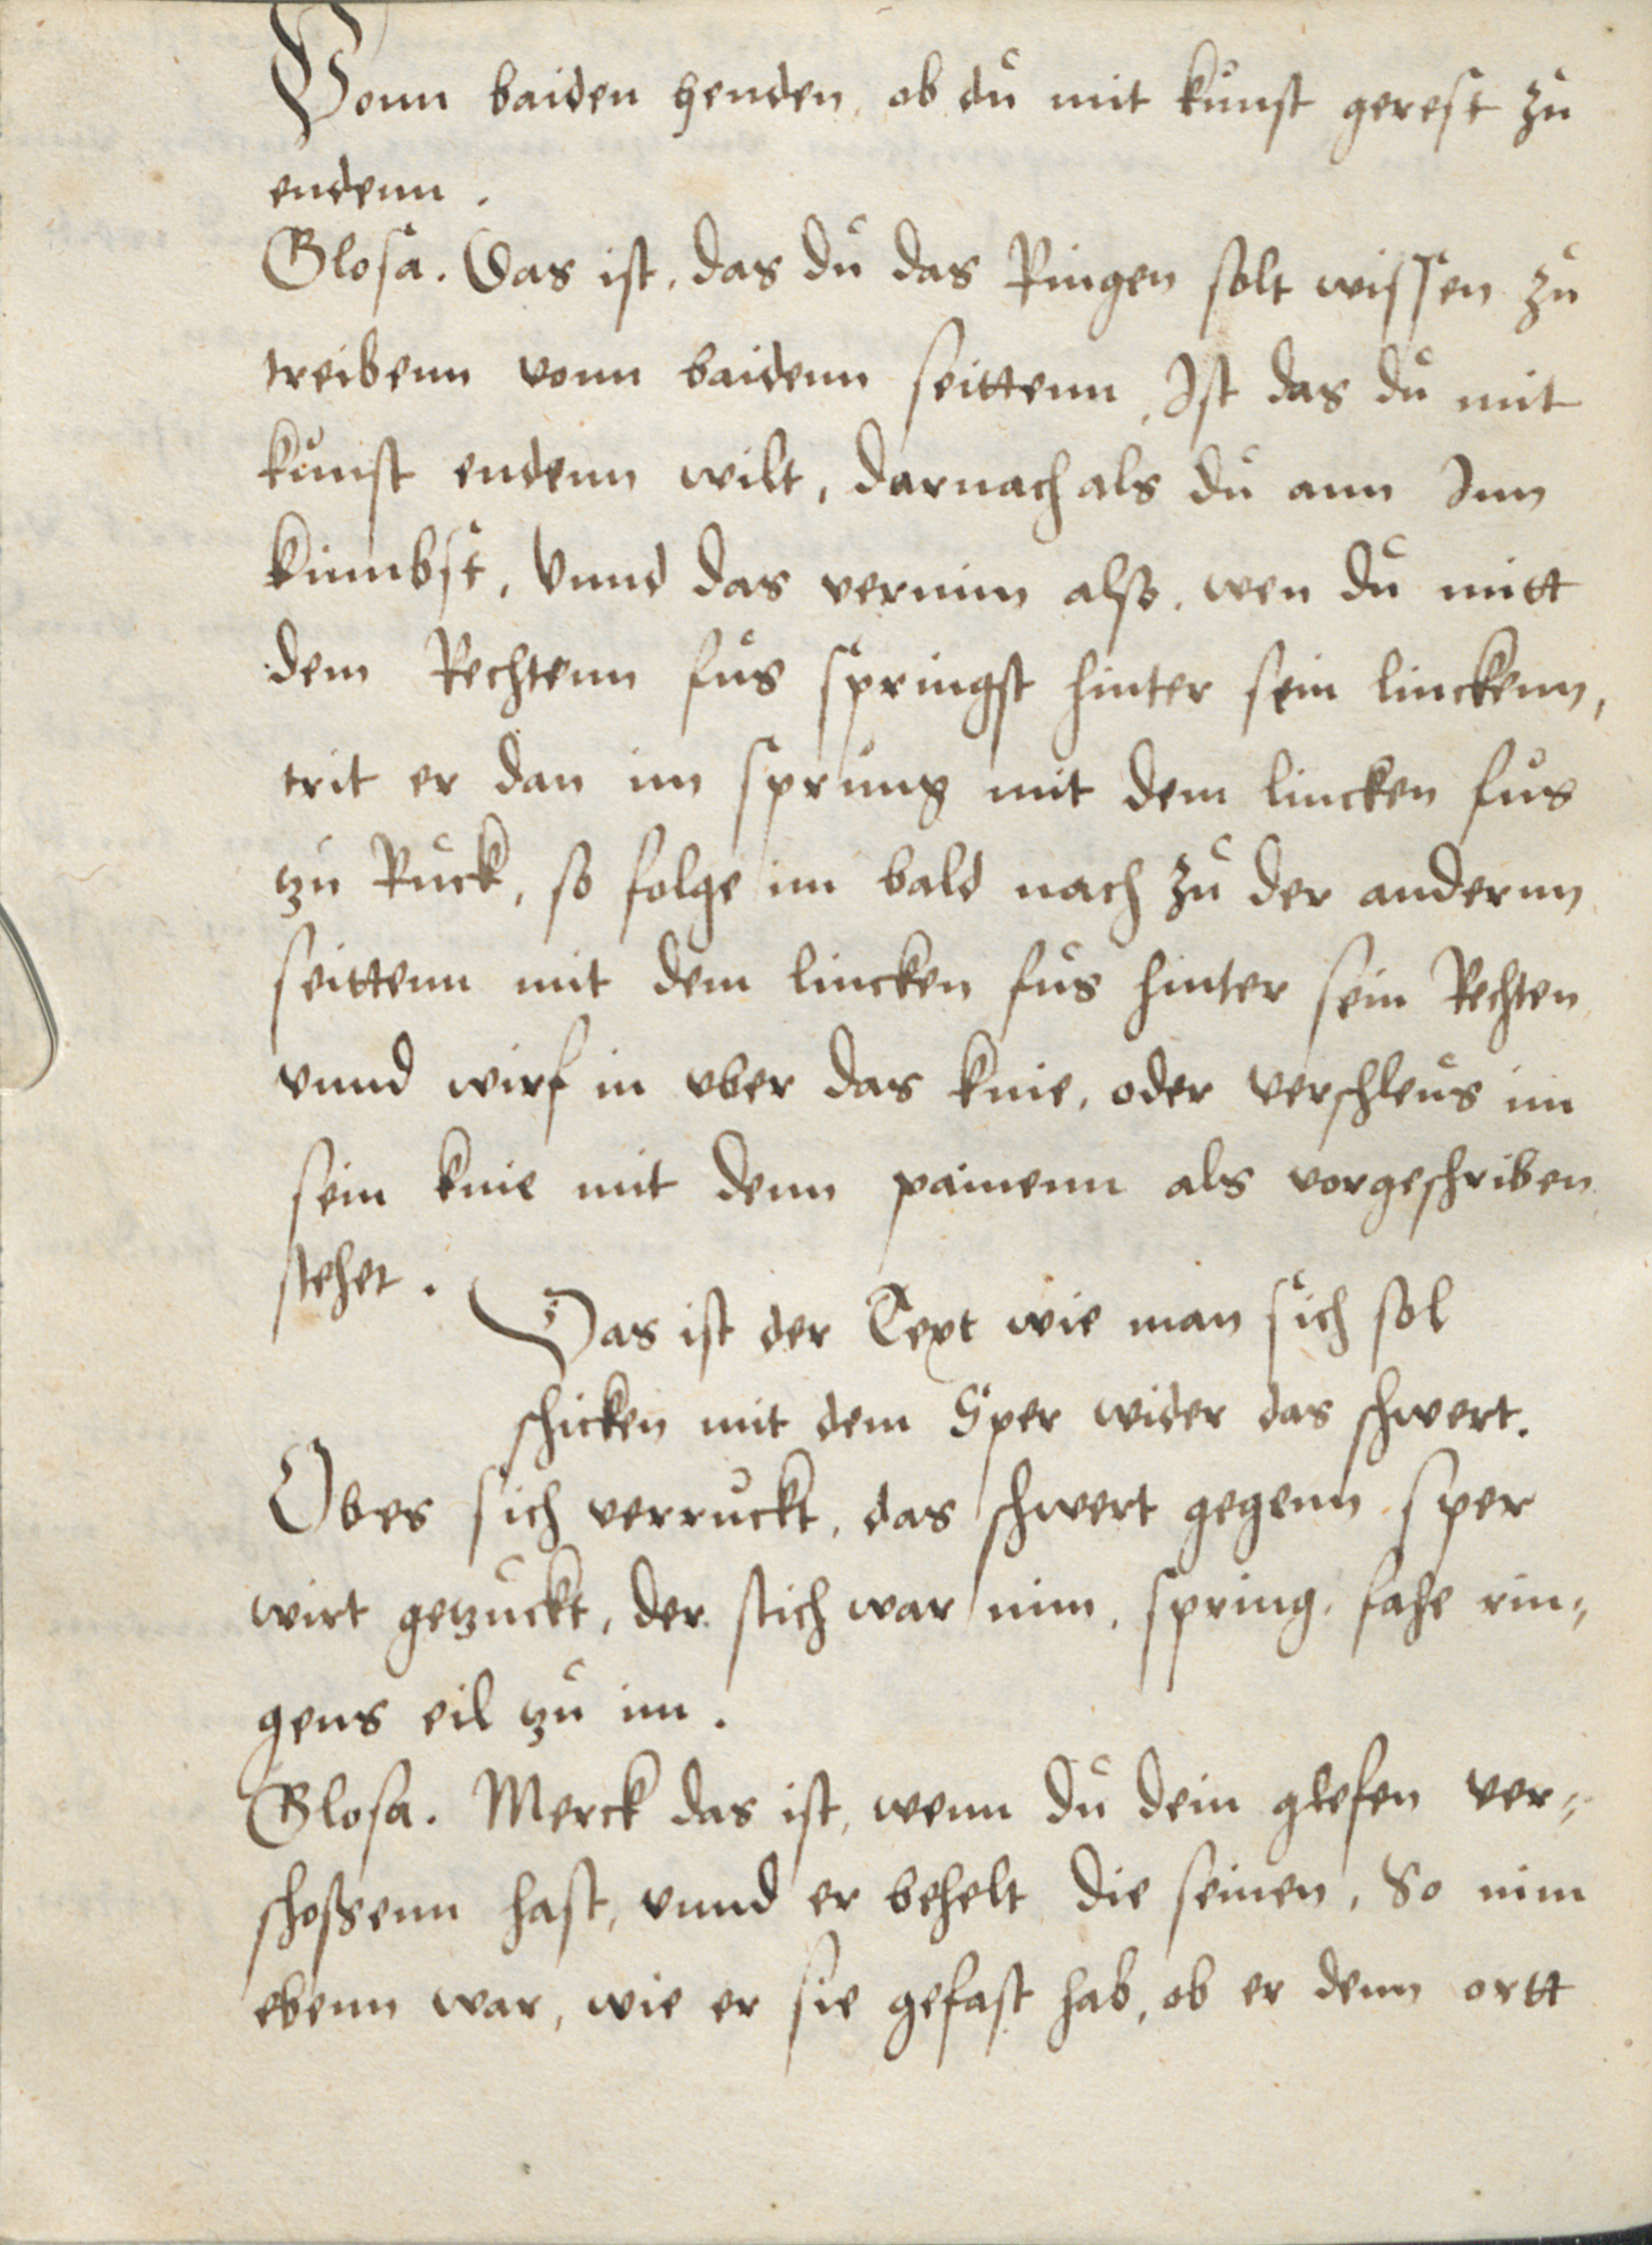 Vonn baiden henden, ob du mit kunst gerest zu
endenn.
Glosa. Das ist, das du das Ringen solt wissen zu
treibenn vonn baidenn seittenn, Ist das du mit
kunst endenn wilt, darnach als du ann Inn
kumbst, Vnnd das vernim also, wen du mitt
dem Rechtenn fus springst hinter sein linckenn,
trit er dan im sprung mit dem lincken fus
zu Ruck, so folge im bald nach zu der andernn
seittenn mit dem lincken fus hinter sein Rechten
vnnd wirf in vber das knie, oder verschleus im
sein knie mit denn painenn als vorgeschriben
stehet.
Das ist der Text wie man sich sol
schicken mit dem Sper wider das schwert.
Ob es sich verruckt, das schwert gegenn sper
wirt gezuckt, der stich war nim, spring, fahe rin=
gens eil zu im.
Glosa. Merck das ist, wenn du dein glefen ver=
schossenn hast, vnnd er behelt die seinen, So nim
ebenn war, wie er sie gefast hab, ob er denn ortt